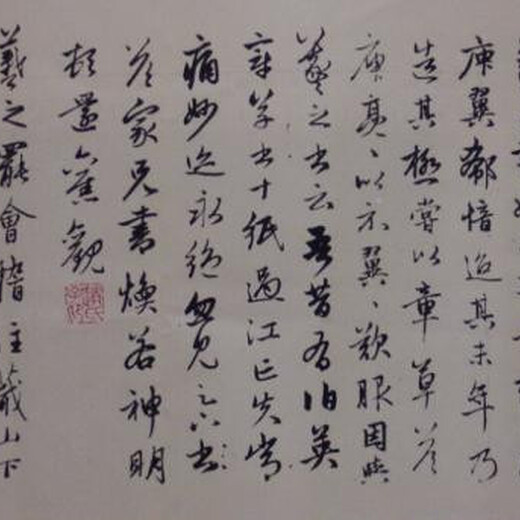 庾翼郗愔迨其末年乃
造其極嘗以章草答
庾亮々以示翼々歎服因與
羲之書云吾昔有伯英
章草書十紙過江亡失常
痛妙迹永絕忽見足下書
答家兄書煥若神明
頓還舊觀
羲之罷會稽住蕺山下